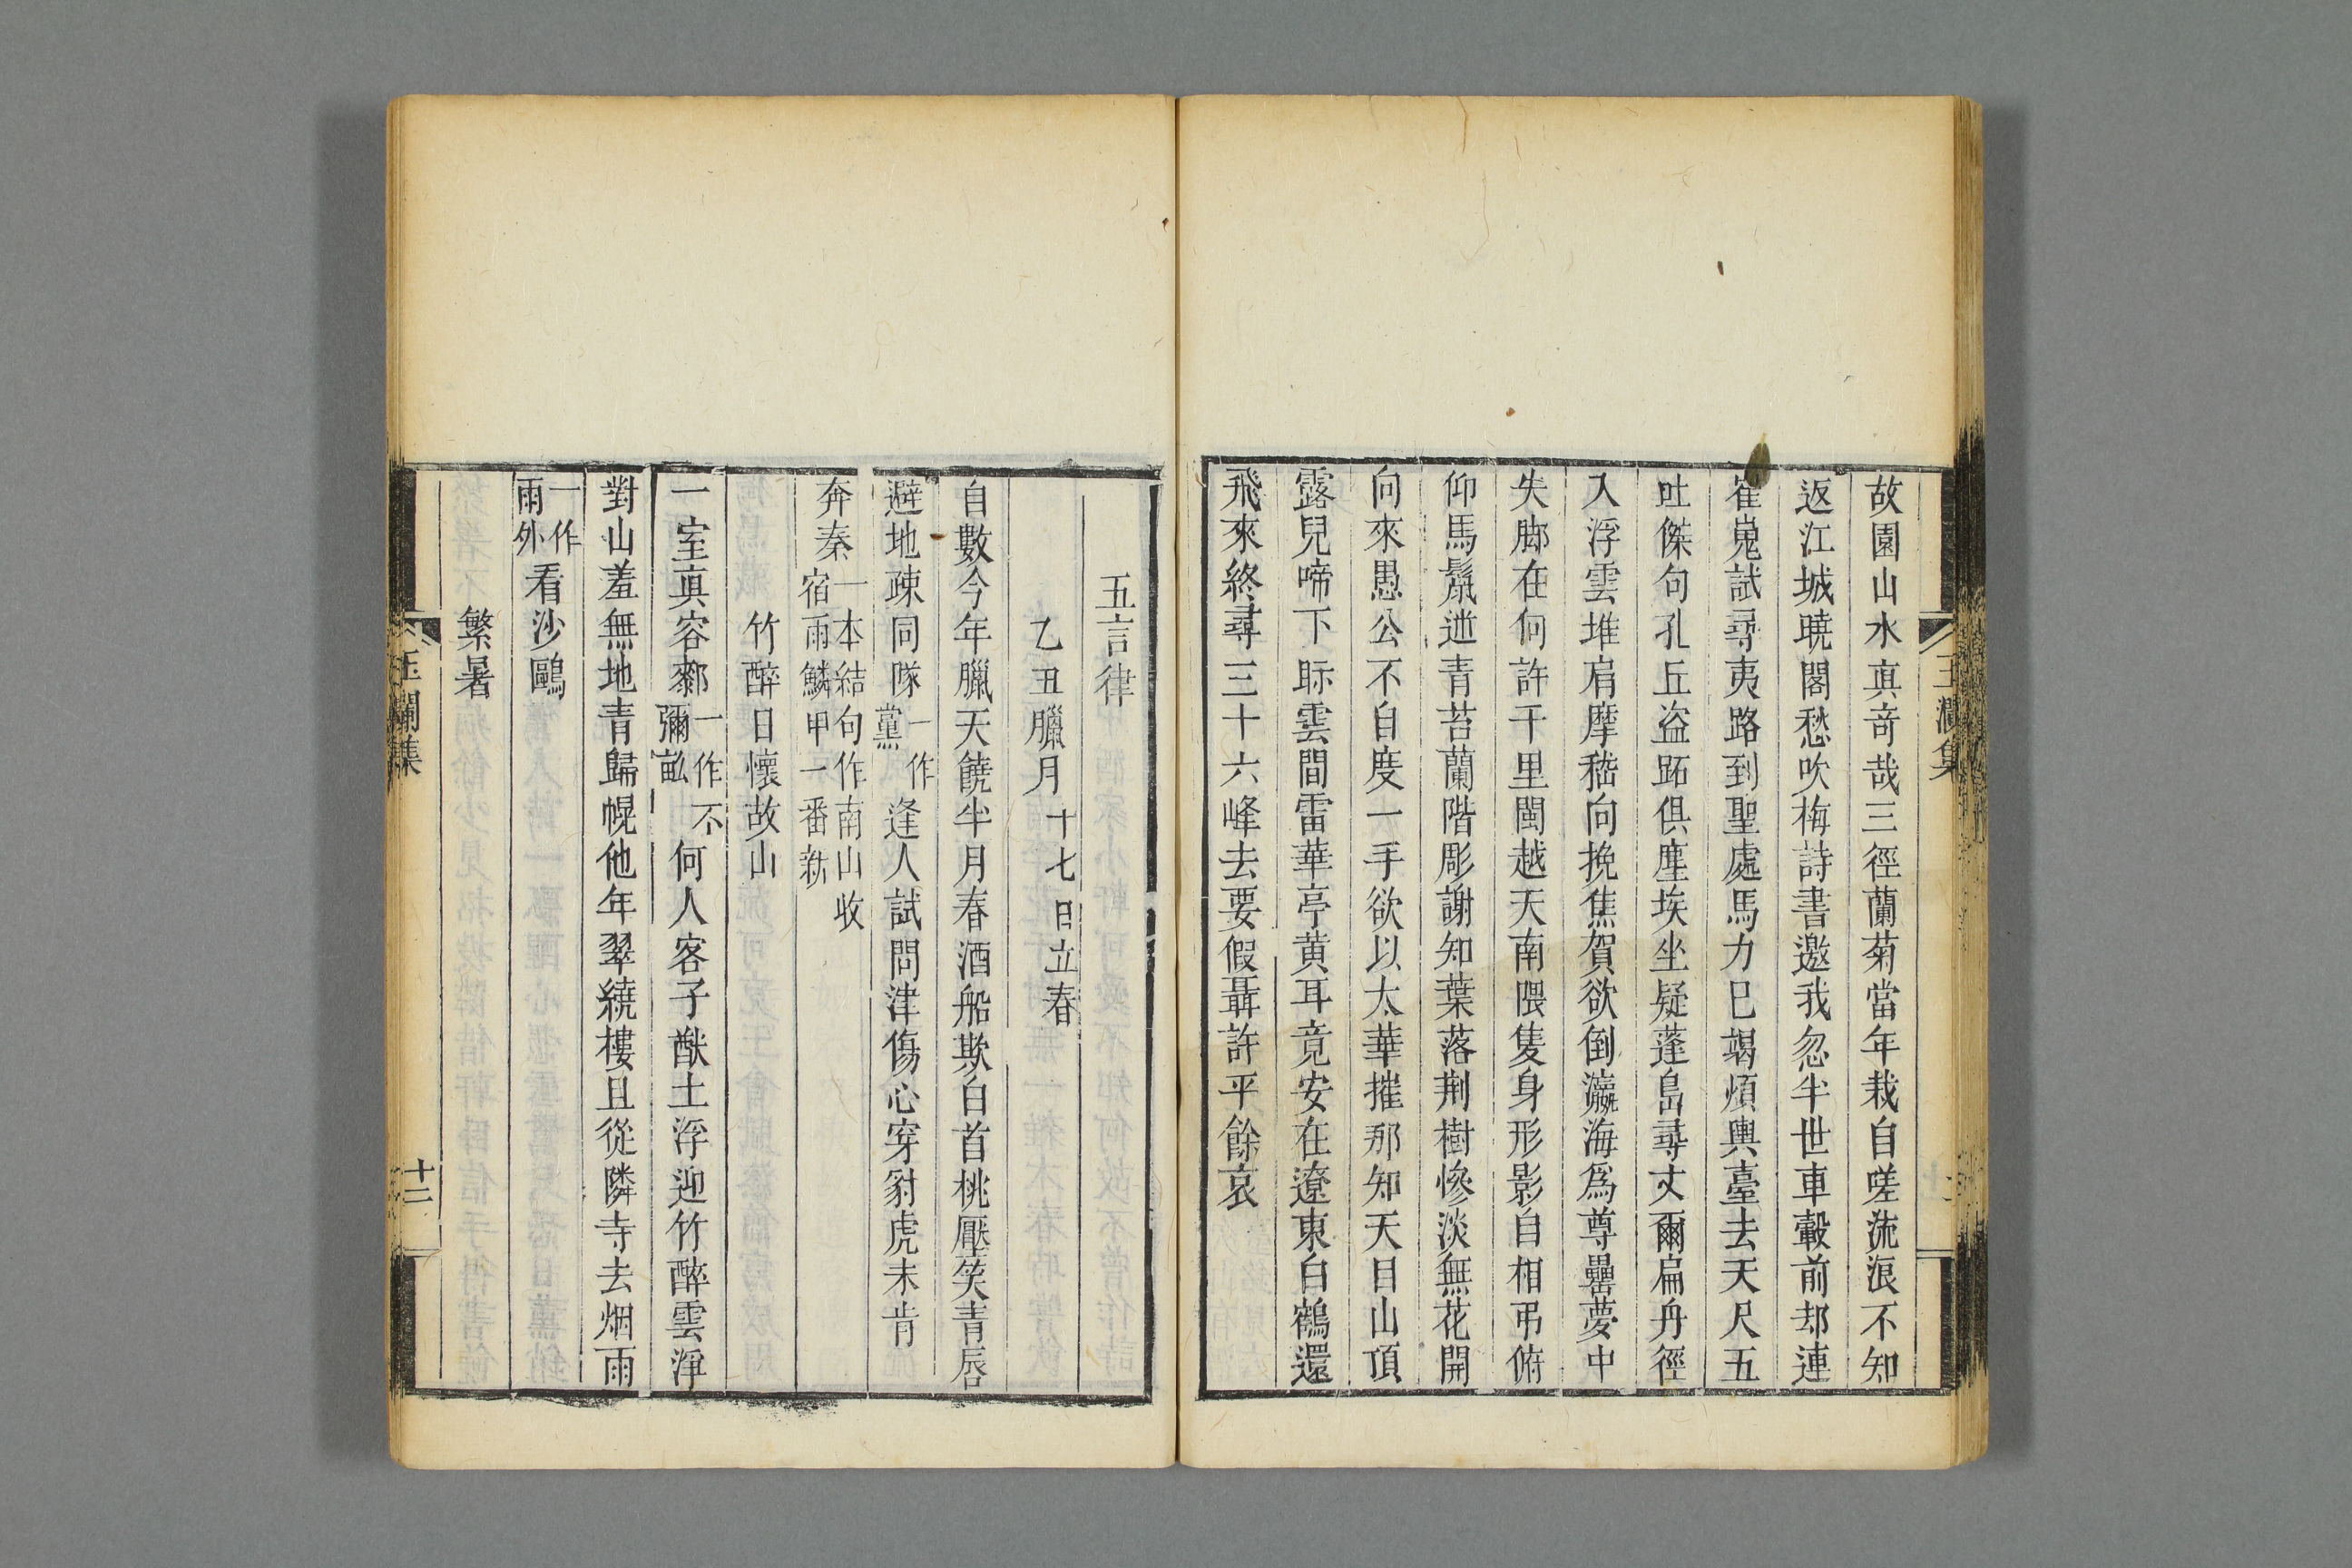 故園山水真奇哉三徑蘭菊當年栽自嗟流浪不知
返江城曉閣愁吹梅詩書邀我忽半世車轂前却連
崔嵬試尋夷路到聖處馬力已竭煩輿臺去天尺五
吐傑句孔丘盗跖俱塵埃坐疑蓬島尋丈爾扁舟徑
入浮雲堆肩摩嵇向挽焦賀欲倒瀛海爲尊罍夢中
失脚在何許千里閩越天南隈隻身形影自相弔俯
仰馬鬛迸青苔蘭階彫謝知葉落荆樹慘淡無花開
向來愚公不自度一手欲以太華摧那知天目山頂
露兒啼下眎雲間雷華亭黄耳竟安在遼東白鶴還
飛來終尋三十六峰去要假聶許平餘哀
玉瀾集
五言律
乙丑臘月十七日立春
自數今年臘天饒半月春酒船欺白首桃壓笑青唇
避地疎同隊一作黨逢人試問津傷心穿豺虎未肯
奔秦一本結句作南山收宿雨鱗甲一番新
竹醉日懷故山
一室真容鄴一作不彌畝何人客子猷土浮迎竹醉雲淨
對山羞無地青歸幌他年翠繞樓且從隣寺去烟雨
一作雨外看沙鷗
繁暑
玉瀾集
十二